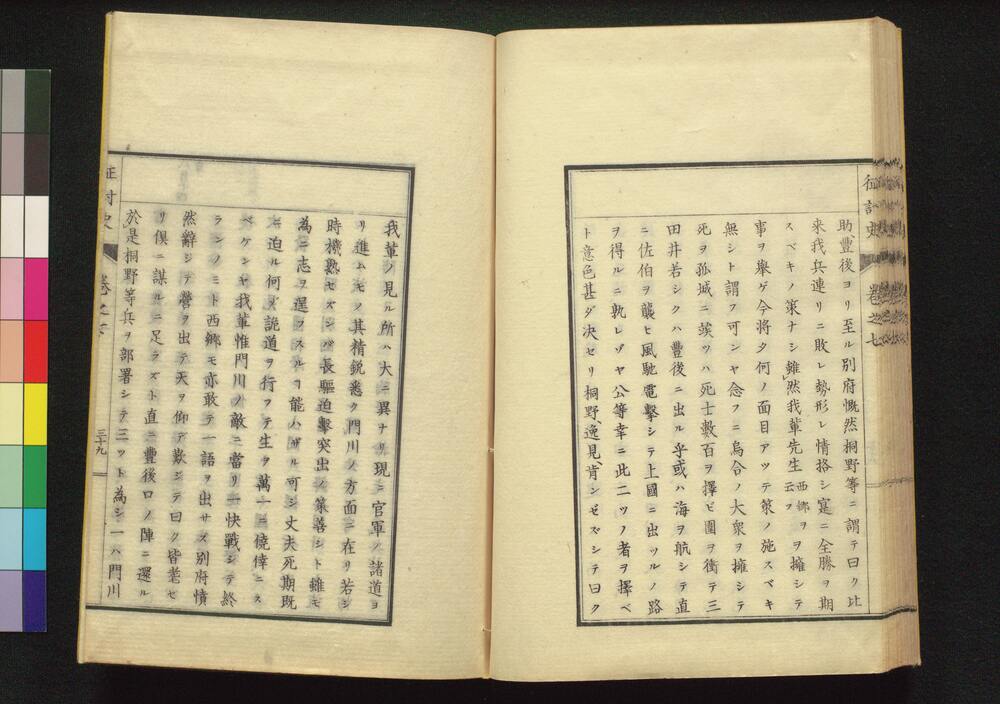 征討史 卷之七
助豐後ヨリ至ル別府慨然桐野等ニ謂テ曰ク比
来我兵連リニ敗レ勢形レ情挌シ寔ニ全勝ヲ期
スベキノ策ナシ雖然我輩先生西郷ヲ云フヲ擁シテ
事ヲ擧ゲ今將タ何ノ面目アツテ策ノ施スベキ
無シト謂フ可ンヤ念フニ烏合ノ大衆ヲ擁シテ
死ヲ孤城ニ竢ツハ死士數百ヲ擇ビ圍ヲ衝テ三
田井若シクハ豐後ニ出ル乎或ハ海ヲ航シテ直
ニ佐伯ヲ襲ヒ風馳電擊シテ上國ニ出ツルノ路
ヲ得ルニ孰レゾヤ公等幸ニ此二ツノ者ヲ擇ベ
ト意色甚ダ决セリ桐野、逸見、肯ンゼズシテ曰ク
我輩ノ見ル所ハ大ニ異ナリ現ニ官軍ノ諸道ヨ
リ進ムモノ其精鋭悉ク門川ノ方面ニ在リ若シ
時機熟セズンバ長驅迫擊突出ノ策善シト雖モ
為ニ志ヲ逞フスルヿ能ハザル可シ丈夫死期既
ニ迫ル何ゾ詭道ヲ行フテ生ヲ萬一ニ僥倖ニス
ベケンヤ我輩惟門川ノ敵ニ當リ一快戰シテ終
ランノミト西郷モ亦敢テ一語ヲ出サズ別府憤
然辭シテ營ヲ出テ天ヲ仰デ歎ジテ曰ク皆耄セ
リ倶ニ謀ルニ足ラズト直ニ豐後口ノ陣ニ還ル
於是桐野等兵ヲ部署シテ三ツト為シ一ハ門川
征討史 卷之七 三十九